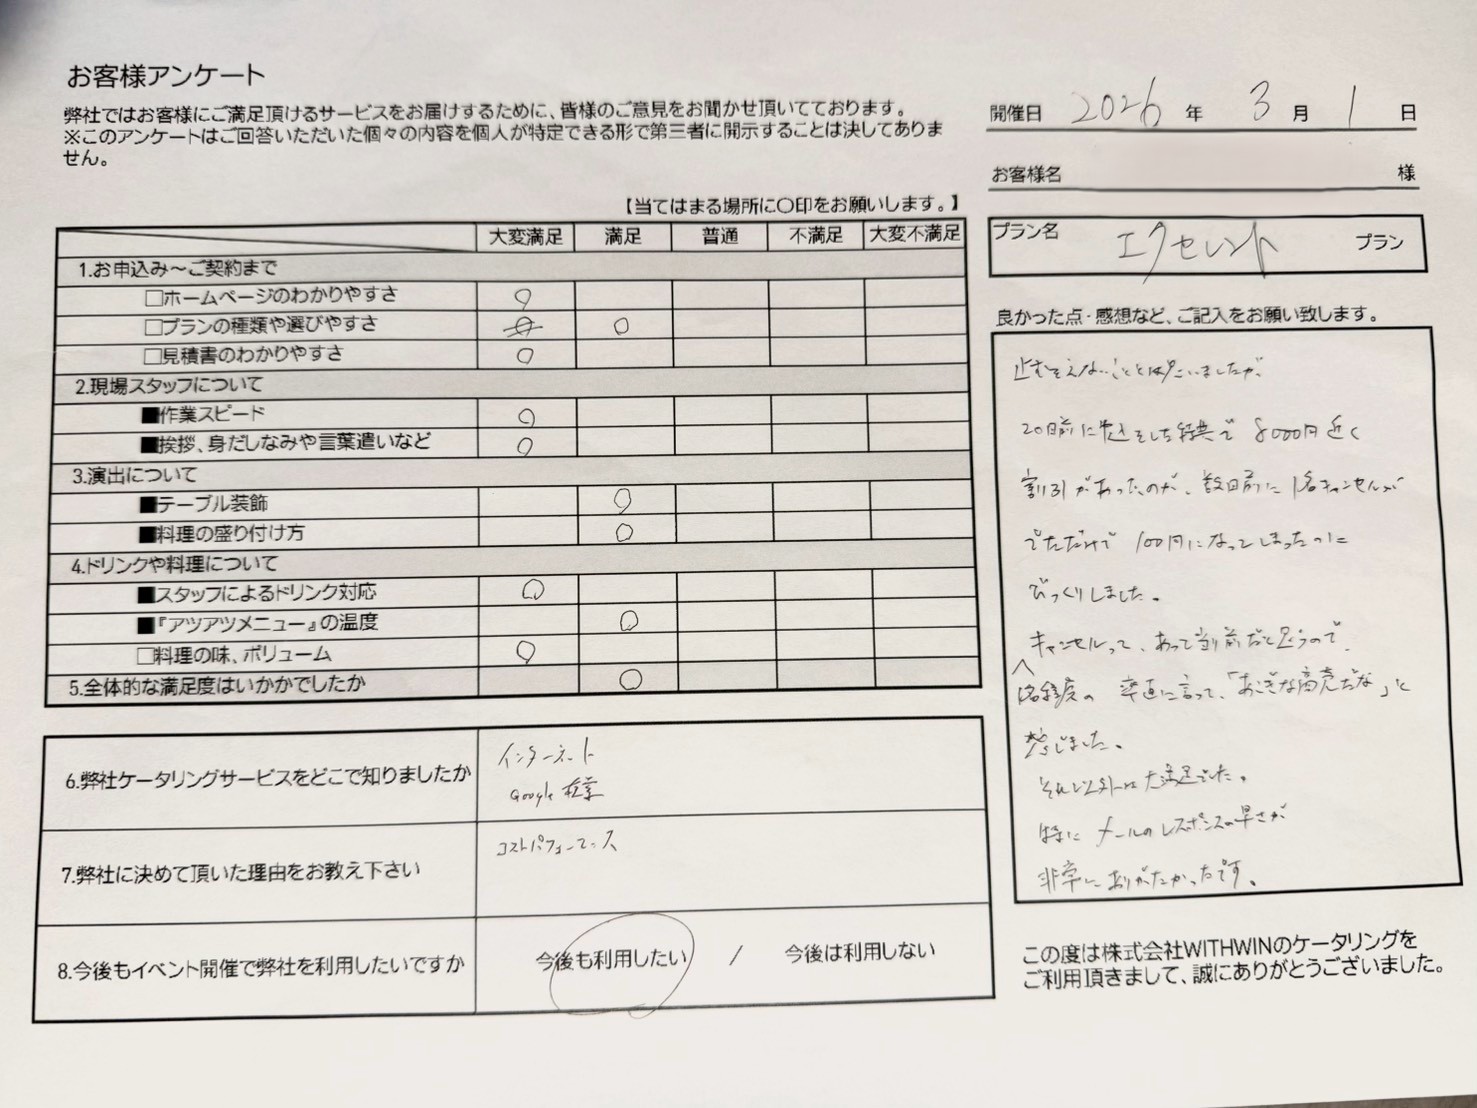 お客様アンケート
弊社ではお客様にご満足頂けるサービスをお届けするために、皆様のご意見をお聞かせ頂いてております。
※このアンケートはご回答いただいた個々の内容を個人が特定できる形で第三者に開示することは決してありま
せん。
開催日 2026 年 3 月 1 日
お客様名 様
【当てはまる場所に〇印をお願いします。】
プラン名 エクセレント プラン
大変満足 満足 普通 不満足 大変不満足
1.お申込み～ご契約まで
□ホームページのわかりやすさ ○
□プランの種類や選びやすさ ○
□見積書のわかりやすさ ○
2.現場スタッフについて
■作業スピード ○
■挨拶、身だしなみや言葉遣いなど ○
3.演出について
■テーブル装飾 ○
■料理の盛り付け方 ○
4.ドリンクや料理について
■スタッフによるドリンク対応 ○
■『アツアツメニュー』の温度 ○
□料理の味、ボリューム ○
5.全体的な満足度はいかかでしたか ○
6.弊社ケータリングサービスをどこで知りましたか
インターネット
Google 検索
7.弊社に決めて頂いた理由をお教え下さい
コストパフォーマンス
8.今後もイベント開催で弊社を利用したいですか
今後も利用したい / 今後は利用しない
良かった点・感想など、ご記入をお願い致します。
止むをえないこととは思いましたが、
20日前に申込をした特典で 8000円近く
割引があったのが、数日前に 1名キャンセルが
でただけで 100円になってしまったのに
びっくりしました。
キャンセルって、あって当り前だと思うので、
1名程度の 率直に言って、「あこぎな商売だな」と
感じました。
それ以外は大満足でした。
特に メールのレスポンスの早さが
非常にありがたかったです。
この度は株式会社WITHWINのケータリングを
ご利用頂きまして、誠にありがとうございました。